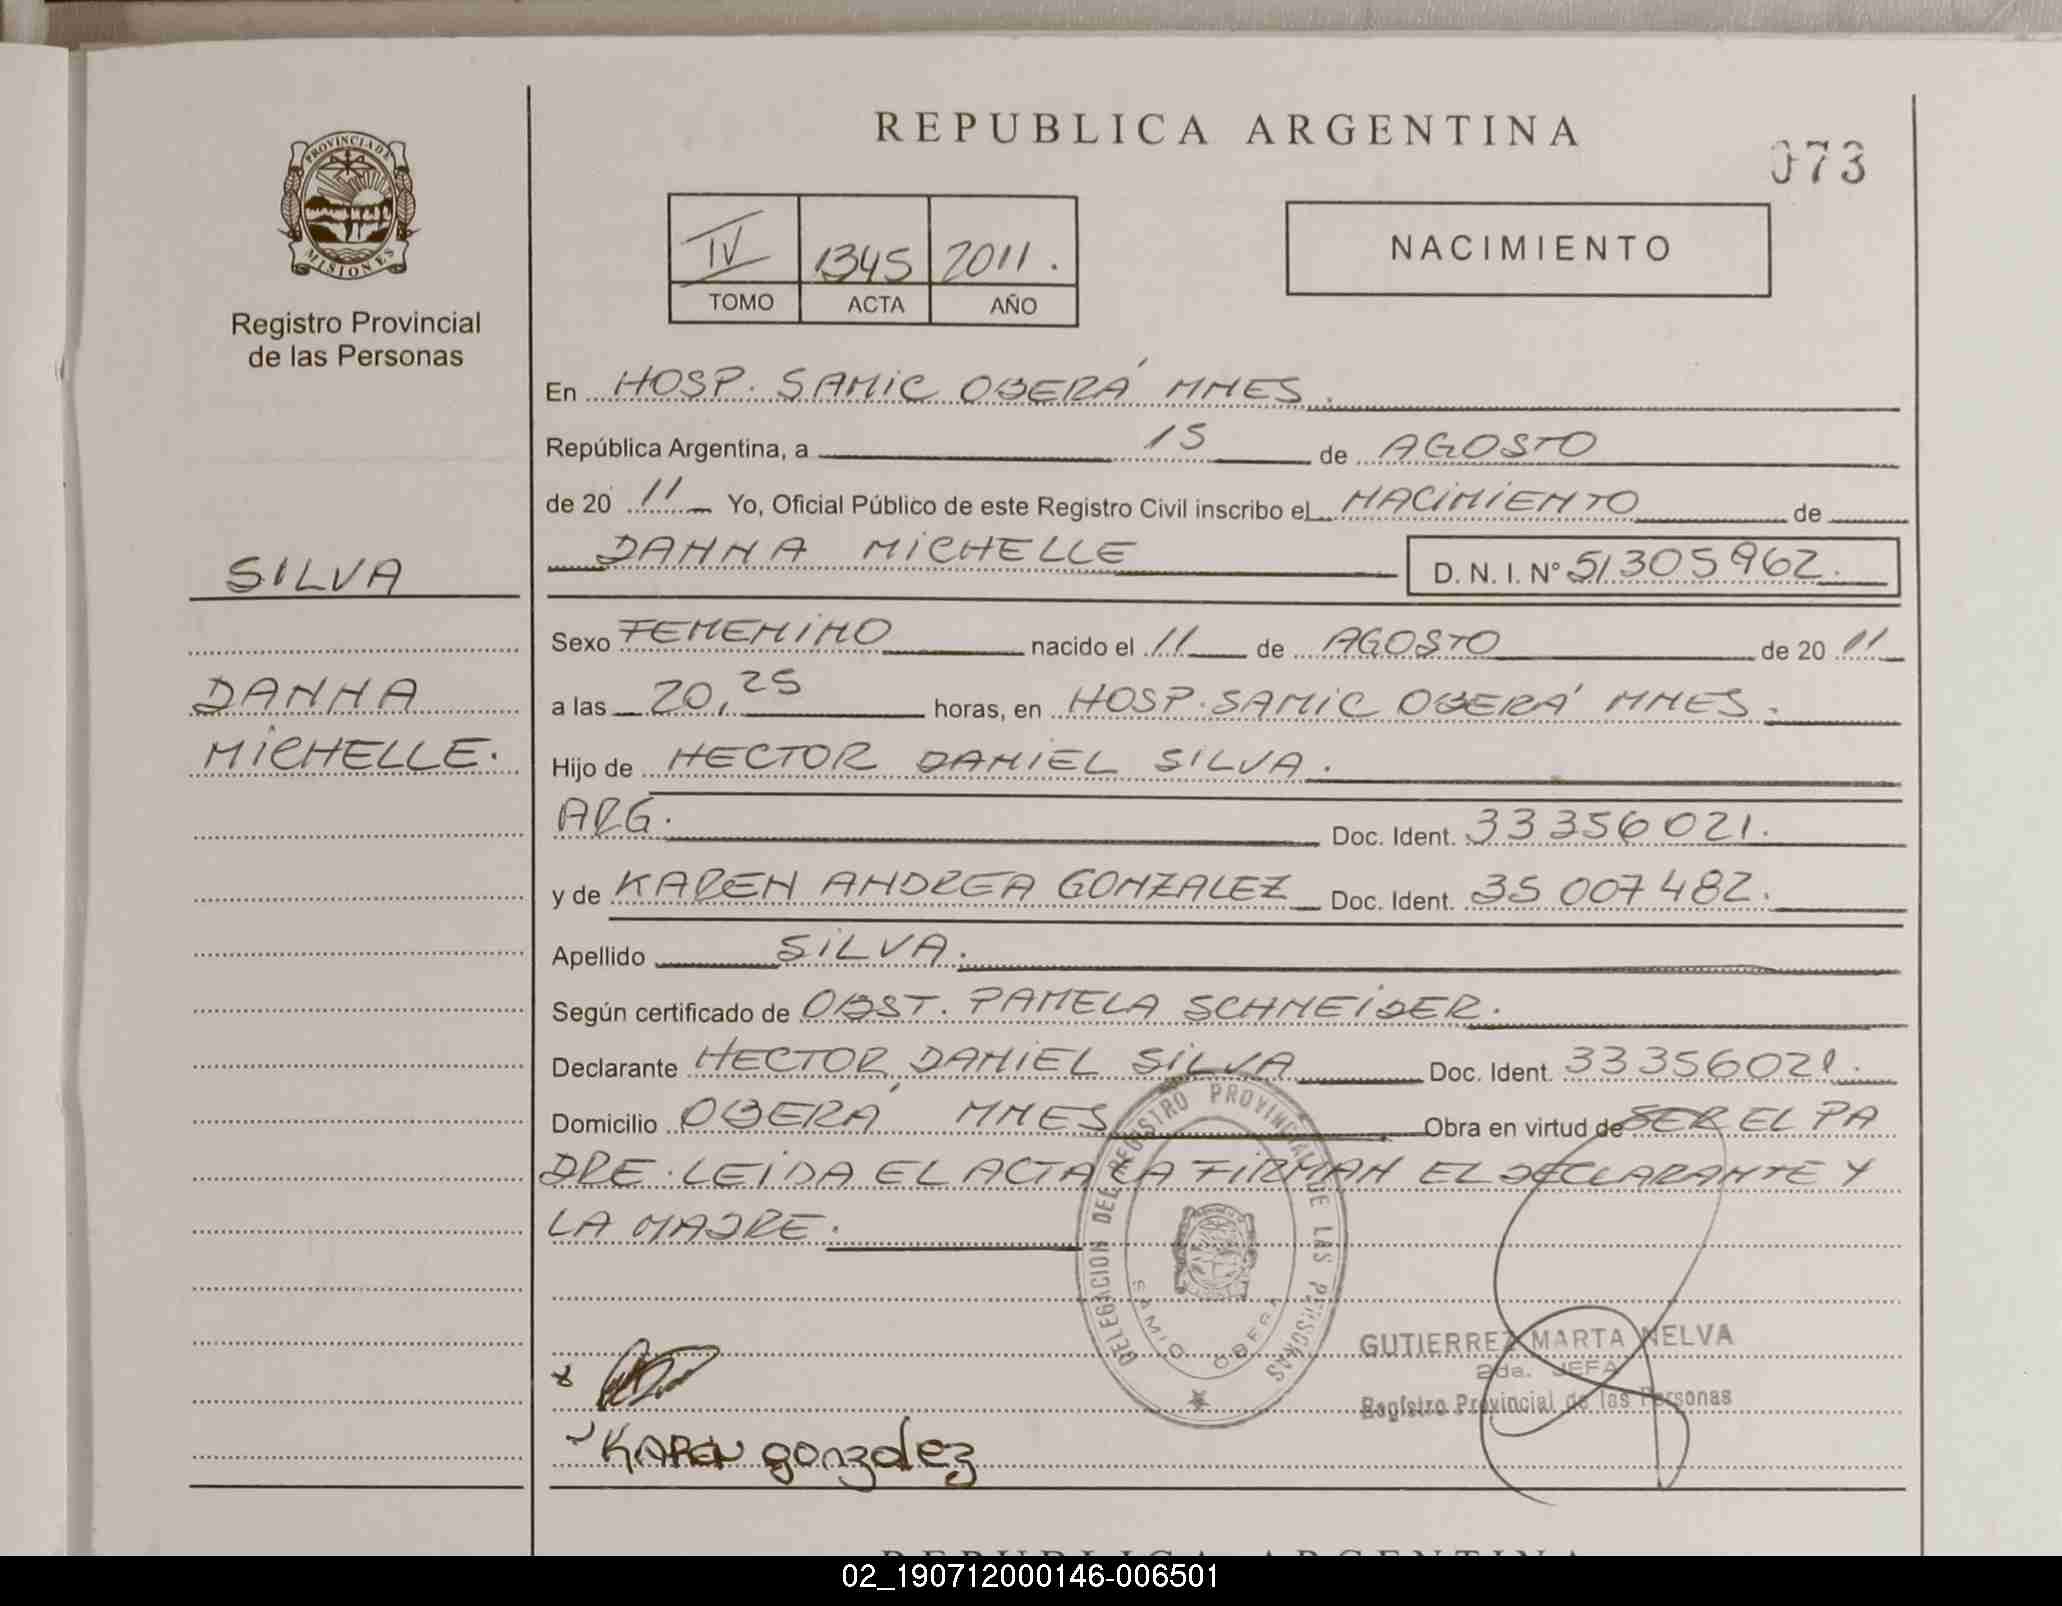 REPUBLICA ARGENTINA
073
PROVINCIA DE
MISIONES
Registro Provincial
de las Personas
IV 1345 2011.
TOMO ACTA AÑO
NACIMIENTO
En HOSP. SAMIC OBERÁ MNES.
República Argentina, a 15 de AGOSTO
de 20 11 Yo, Oficial Público de este Registro Civil inscribo el NACIMIENTO de
DANNA MICHELLE D. N. I. N° 51305962.
SILVA
Sexo FEMENINO nacido el 11 de AGOSTO de 20 11
DANNA
a las 20,25 horas, en HOSP. SAMIC OBERÁ MNES.
MICHELLE.
Hijo de HECTOR DANIEL SILVA.
ARG. Doc. Ident. 33356021.
y de KAREN ANDREA GONZALEZ Doc. Ident. 35007482.
Apellido SILVA.
Según certificado de OBST. PAMELA SCHNEIDER.
Declarante HECTOR DANIEL SILVA Doc. Ident. 33356021.
Domicilio OBERÁ MNES Obra en virtud de SER EL PA
DRE. LEIDA EL ACTA LA FIRMAN EL DECLARANTE Y
LA MADRE.
DELEGACION DEL REGISTRO PROVINCIAL DE LAS PERSONAS
SAMIC OBERA
GUTIERREZ MARTA NELVA
2da. JEFA
Registro Provincial de las Personas
KAREN gonzalez
REPUBLICA ARGENTINA
02_190712000146-006501